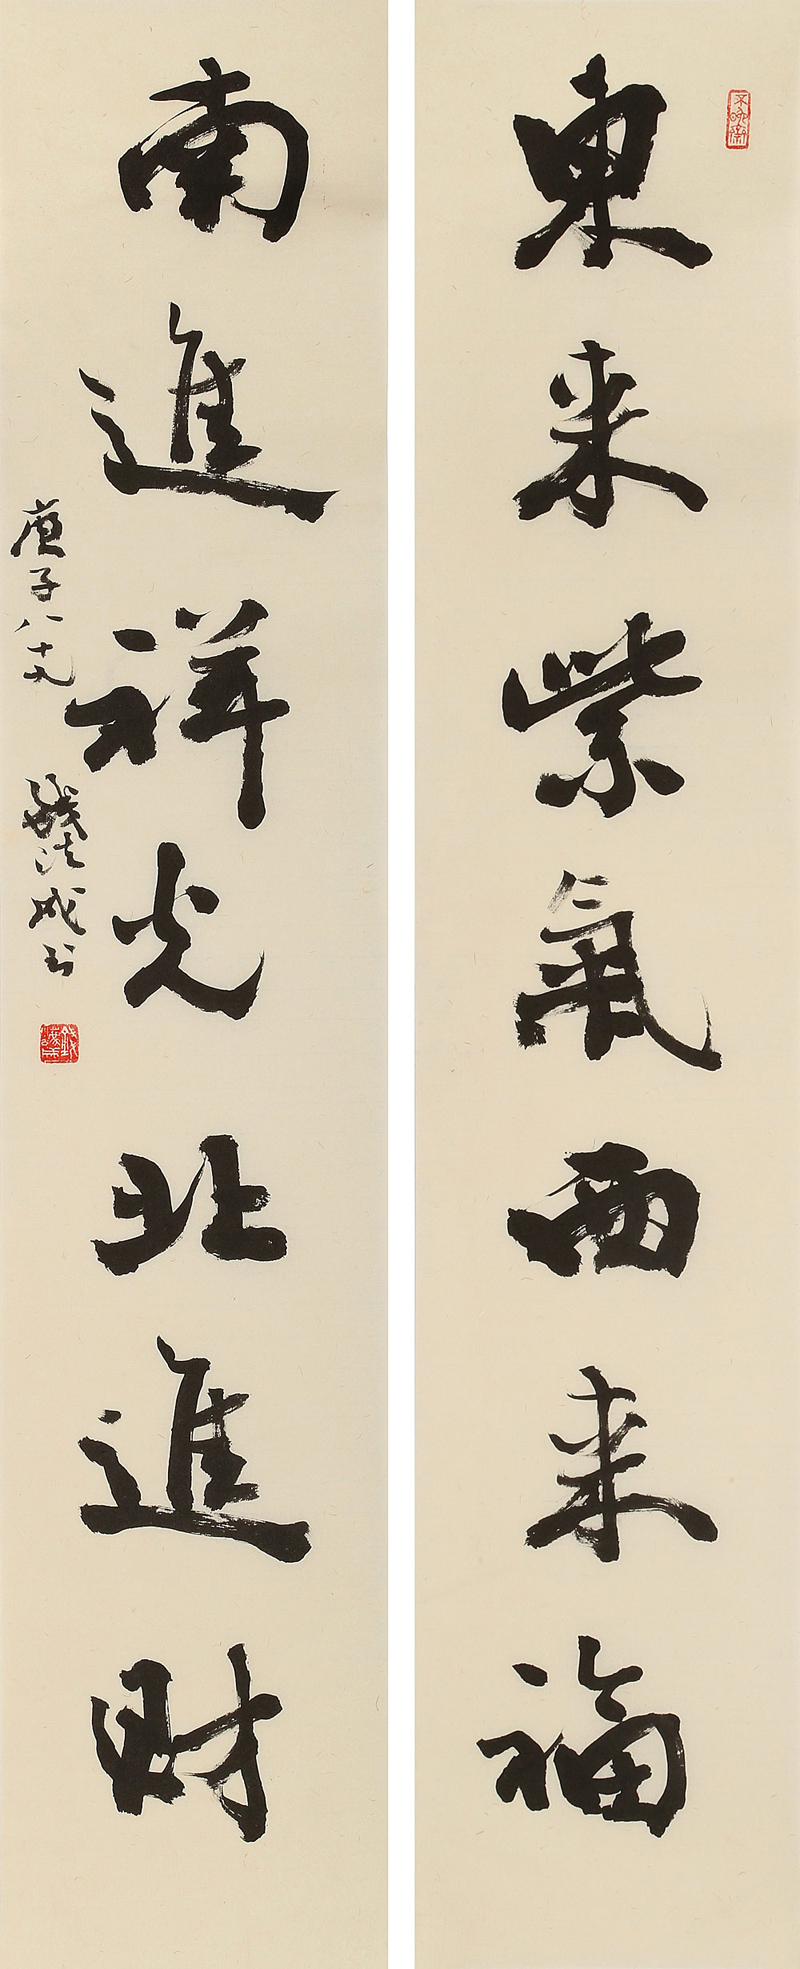 東来紫氣西来福
南進祥光北進財
庚子八十九
錢法成书